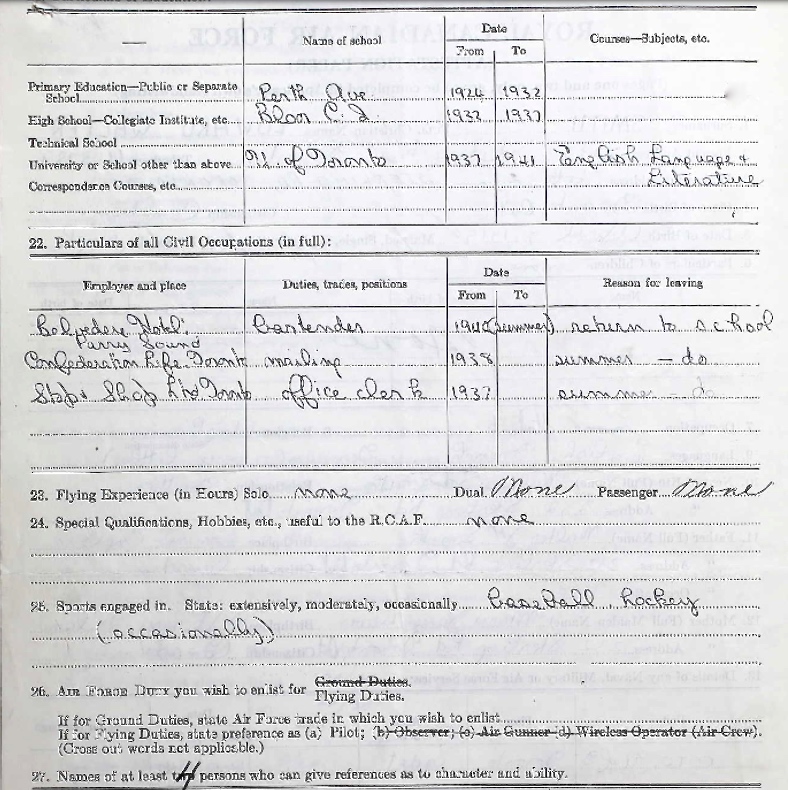 Date
— Name of school From To Courses—Subjects, etc.
Primary Education—Public or Separate School Perth Ave. 1924 1932
High School—Collegiate Institute, etc. Bloor C. I. 1932 1937
Technical School
University or School other than above U. of Toronto 1937 1941 English Language &
Correspondence Courses, etc. Literature
22. Particulars of all Civil Occupations (in full):
Date
Employer and place Duties, trades, positions From To Reason for leaving
Belvedere Hotel, bartender 1940 (summer) return to school
Parry Sound
Confederation Life Toronto mailing 1938 summer — do
Shop Ltd Toronto office clerk 1937 summer — do
23. Flying Experience (in Hours) Solo none Dual None Passenger None
24. Special Qualifications, Hobbies, etc., useful to the R.C.A.F. none
25. Sports engaged in. State: extensively, moderately, occasionally baseball, hockey
(occasionally)
26. Air Force Duty you wish to enlist for Ground Duties.
Flying Duties.
If for Ground Duties, state Air Force trade in which you wish to enlist
If for Flying Duties, state preference as (a) Pilot; (b) Observer; (c) Air Gunner (d) Wireless Operator (Air Crew).
(Cross out words not applicable.)
27. Names of at least 4 persons who can give references as to character and ability.